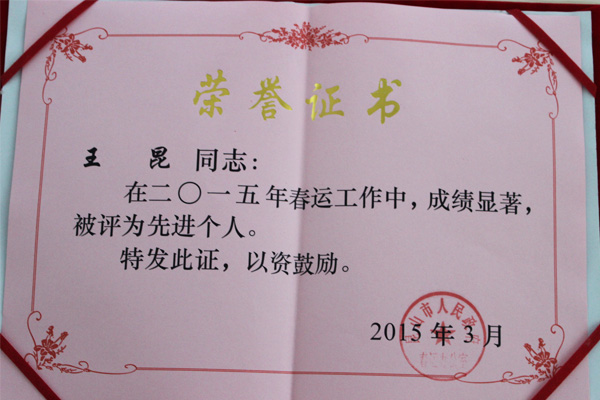 荣誉证书
王 昆 同志：
在二〇一五年春运工作中，成绩显著，
被评为先进个人。
特发此证，以资鼓励。
山市人民政府
2015 年 3 月